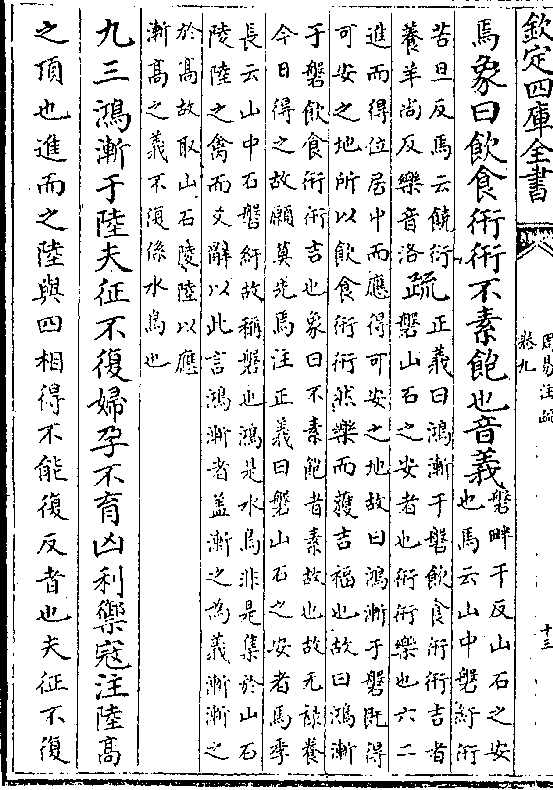 欽定四庫全書
周易注疏
卷九
十三
焉象曰飲食衎衎不素飽也音義磐畔干反山石之安
也馬云山中磐紆衎
苦旦反馬云饒衍
養羊尚反樂音洛疏正義曰鴻漸于磐飲食衎衎吉者
磐山石之安者也衎衎樂也六二
進而得位居中而應得可安之地故曰鴻漸于磐旣得
可安之地所以飲食衎衎然樂而獲吉福也故曰鴻漸
于磐飲食衎衎吉也象曰不素飽者素故也故无祿養
今日得之故願莫先焉注正義曰磐山石之安者馬季
長云山中石磐紆故稱磐也鴻是水鳥非是集於山石
陵陸之禽而爻辭以此言鴻漸者蓋漸之為義漸漸之
於高故取山石陵陸以應
漸高之義不復係水鳥也
九三鴻漸于陸夫征不復婦孕不育凶利禦寇注陸高
之頂也進而之陸與四相得不能復反者也夫征不復